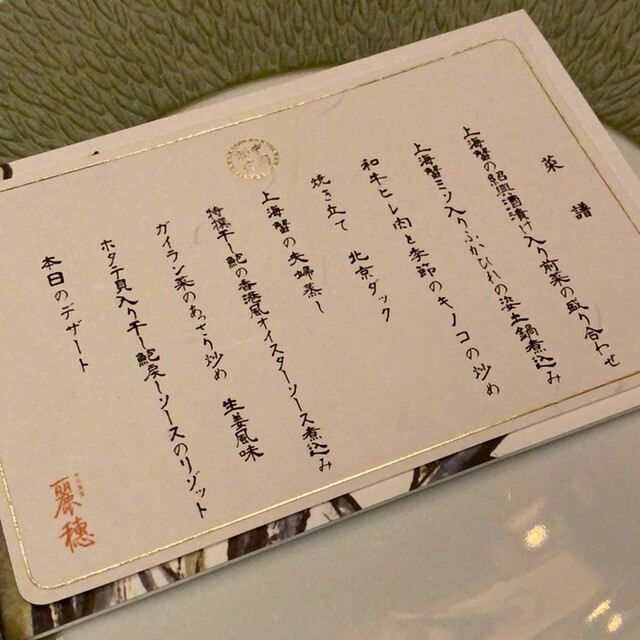 菜譜
上海蟹の紹興酒漬け入り前菜の盛り合わせ
上海蟹ミソ入りふかひれの染土鍋煮込み
和牛ヒレ肉と季節のキノコの炒め
焼き立て 北京ダック
上海蟹の夫婦蒸し
特撰干し鮑の香港風オイスターソース煮込み
ガイラン菜のあっさり炒め 生姜風味
ホタテ貝入り干し鮑汁ソースのリゾット
本日のデザート
麗穂